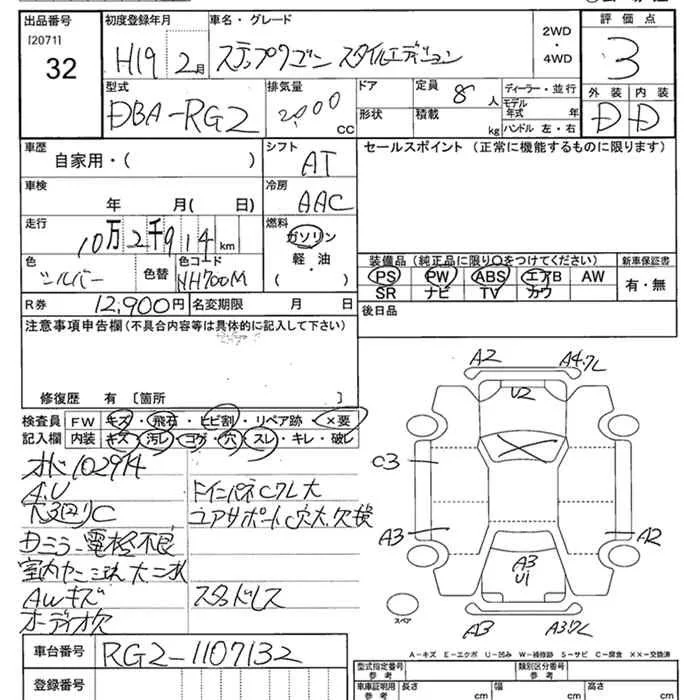 出品番号
[2071]
32
初度登録年月
H19 2月
車名・グレード
ステップワゴン スタイルエディション
2WD
・
4WD
評価点
3
型式
DBA-RG2
排気量
2,000 CC
ドア
形状
定員 8 人
積載 kg
ディーラー・並行
モデル年式 年
ハンドル 左・右
外装 内装
D D
車歴
自家用・( )
シフト
AT
セールスポイント (正常に機能するものに限ります)
車検
年 月( 日)
冷房
AAC
走行
10万2千914km
燃料
ガソリン
軽・油
( )
色
シルバー
色替
色コード
NH700M
装備品(純正品に限り○をつけてください)
新車保証書
PS PW ABS エアB AW
SR ナビ TV カワ
有・無
R券 12,900円
名変期限 月 日
後日品
注意事項申告欄(不具合内容等は具体的に記入して下さい)
修復歴 有 [箇所 ]
検査員
記入欄
FW キズ・飛石・ヒビ割・リペア跡・×要
内装 キズ・汚レ・コゲ・穴・スレ・キレ・破レ
102914
A.U
下3回りC
室内ヤニ
AWキズ
オーディオ欠
ドインパネCワレ大
コアサポートC穴大、欠検
スタッドレス
A2
A4.ワレ
U2
C3
A3
A2
A3
U1
A3
A3ワレ
スペア
A-キズ E-エクボ U-凹み W-補修跡 S-サビ C-腐食 ××-交換済
車台番号
RG2-1107132
登録番号
型式指定番号
参考
類別区分番号
参考
車庫証明用
参考
長さ cm
幅 cm
高さ cm